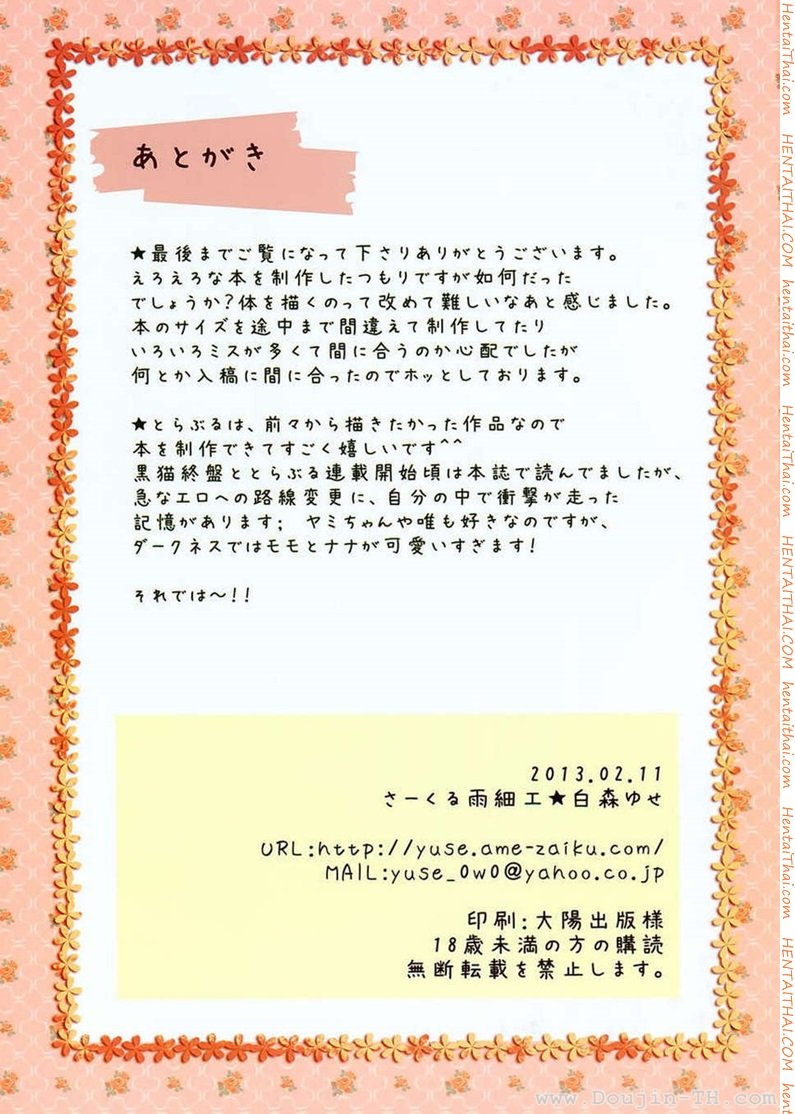 あとがき
★最後までご覧になって下さりありがとうございます。
えろえろな本を制作したつもりですが如何だった
でしょうか?体を描くのって改めて難しいなあと感じました。
本のサイズを途中まで間違えて制作してたり
いろいろミスが多くて間に合うのか心配でしたが
何とか入稿に間に合ったのでホッとしております。
★とらぶるは、前々から描きたかった作品なので
本を制作できてすごく嬉しいです^^
黒猫終盤ととらぶる連載開始頃は本誌で読んでましたが、
急なエロへの路線変更に、自分の中で衝撃が走った
記憶があります; ヤミちゃんや唯も好きなのですが、
ダークネスではモモとナナが可愛いすぎます!
それでは〜!!
2013.02.11
さーくる雨細工★白森ゆせ
URL:http://yuse.ame-zaiku.com/
MAIL:yuse_0w0@yahoo.co.jp
印刷:大陽出版様
18歳未満の方の購読
無断転載を禁止します。
HentaiThai.com
HENTAITHAI.COM
hentaithai.com
HentaiThai.com
HENTAITHAI.COM
hentaithai.com
HentaiThai.com
HENTAITHAI.COM
www.Doujin-TH.com